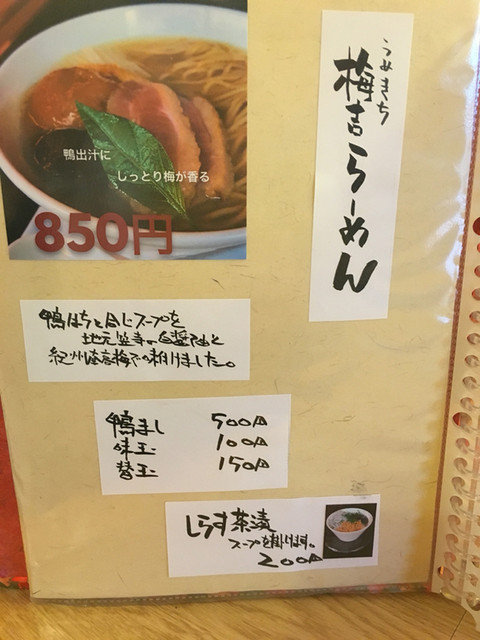 うめきち
梅吉らーめん
鴨出汁に
しっとり梅が香る
850円
鴨はちと同じスープを
地元笠寺の白醤油と
紀州南高梅で味付けました。
鴨まし 500円
味玉 100円
替玉 150円
しらす茶漬
スープを掛けます。
200円